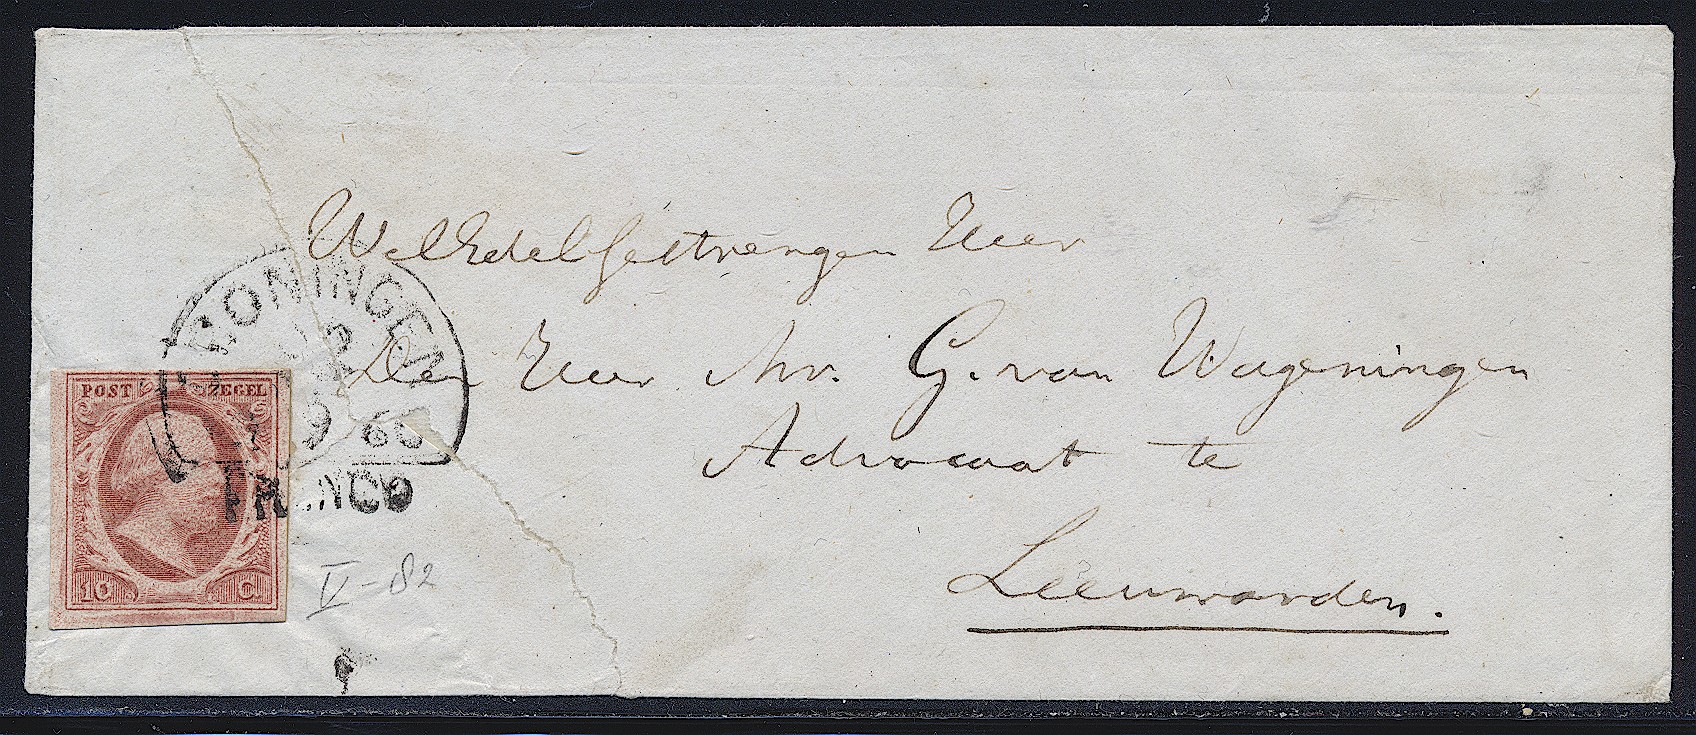 WelEdelGestrengen Heer
Den Heer Mr. G. van Wageningen
Advocaat te
Leeuwarden.
GRONINGEN
9 60
FRANCO
POST ZEGEL
10 Ct
V-82